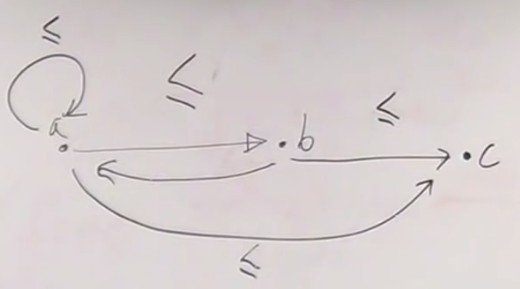 ≤
≤
≤
a
b
c
≤